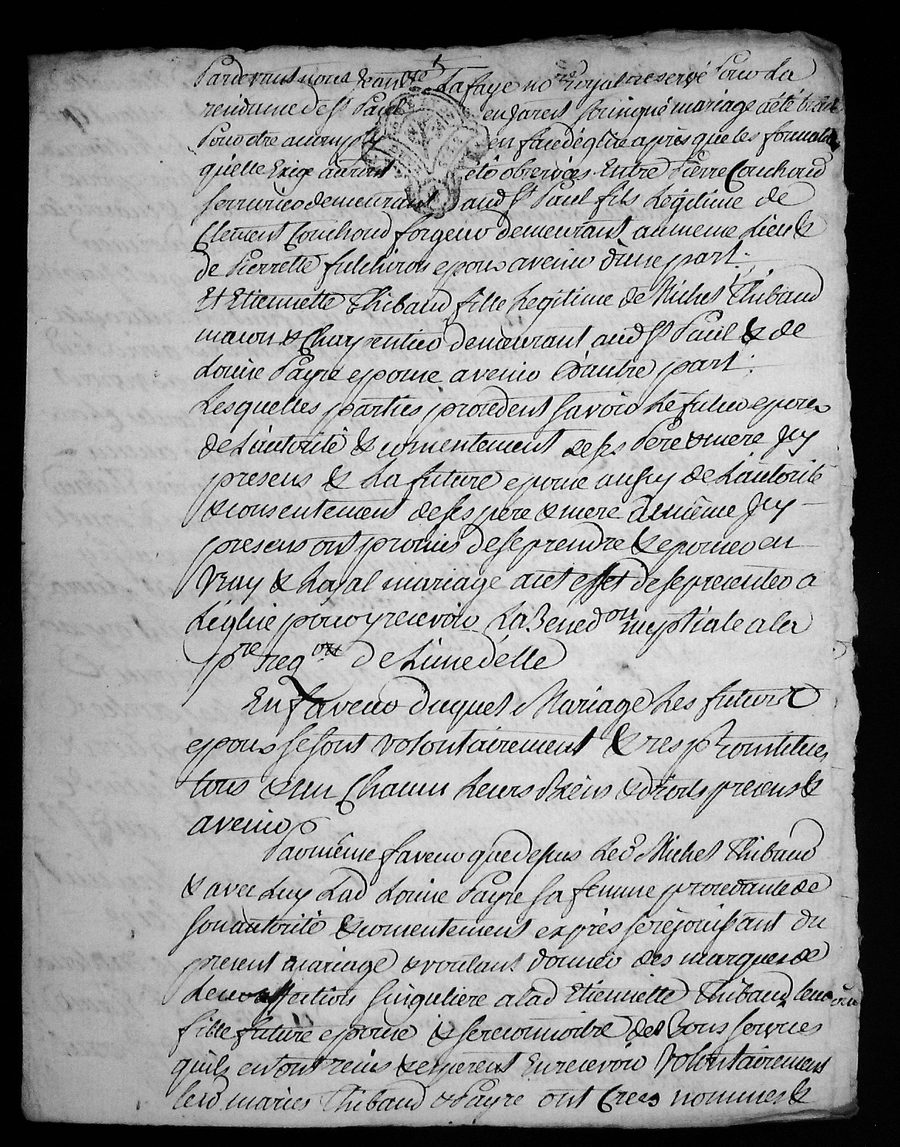 Pardevant nous Jean Lafaye no.re Royal reservé Pour La
rendame de St Paul en Jarest mariage a été
Pour etre accomply en face d'église apres que les formalités
qu'elle Exige auront été observées Entre Pierre Couchoud
serrurier demeurant aud St Paul fils Legitime de
Clement Couchoud forgeur demeurant au meme Lieu &
de Pierrette fulchiron epoux avenir d'une part.
Et Etiennette Thibaud fille Legitime de Michel Thibaud
maçon & Charpentier demeurant aud St Paul & de
Louise Payre epouse avenir d'autre part.
Lesquelles parties procedent savoir Le futur epoux
de L'autorité & consentement de ses Pere & mere Icy
presens & La future epouse aussy de L'autorité
& consentement de ses pere & mere de meme Icy
presens ont promis de se prendre & epouser en
vray & Loyal mariage a cet effet de se presenter a
L'eglise pour y recevoir La Bened.on nuptiale a la
p.re req.on de L'une d'elle
En faveur duquel Mariage Les futurs
epoux se sont volontairement & resp.t constitués
tous & un Chacun Leurs Biens & droits presens &
avenir
Par meme faveur que dessus Led. Michel Thibaud
& avec Luy Lad Louise Payre sa femme procedante de
son autorité & consentement exprès se rejouissant du
present mariage & voulant donner des marques de
Leur affection singuliere a lad Etiennette Thibaud leur
fille future epouse & se reconnoitre des Bons services
qu'ils en ont reçus & esperent En recevoir volontairement
lesd mariés Thibaud & Payre ont Créés nommés &